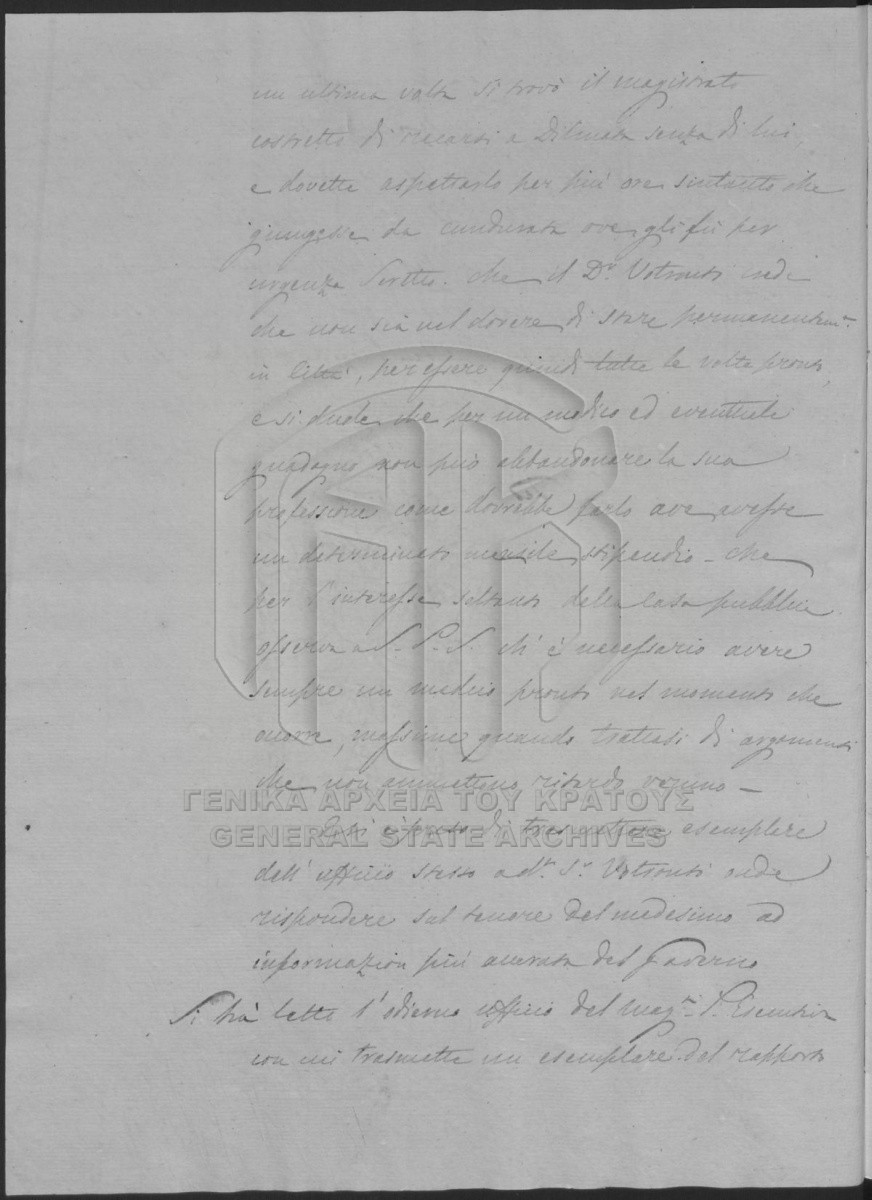 un ultima volta si trovò il magistrato
costretto di recarsi a Dilinata senza di lui,
e dovette aspettarlo per più ore sintanto che
giungesse da Cundurata ove gli fù per
urgenza scritto. che il Dr. Votsonti
che non sia nel dovere di stare permanentemt.
in Città, per essere quindi tutte le volte pronto,
e si duole che per un medico ed eventuale
guadagno non può abbandonare la sua
professione come dovrebbe farlo ove avesse
un determinato mensile stipendio - che
per l'interesse soltanto della Casa pubblica
osserva a S. P. S. ch'è necessario avere
sempre un medico pronto nel momento che
occorre, massime quando trattasi di argomenti
che non ammettono ritardo veruno -
di trasmettere esemplare
dell'ufficio stesso a Sr. Votsonti onde
rispondere sul tenore del medesimo ad
informazion più accurata del Governo
Si hà letto l'odierno ufficio del magn. P. Esecutivo
con cui trasmette un esemplare del rapporto
ΓΕΝΙΚΑ ΑΡΧΕΙΑ ΤΟΥ ΚΡΑΤΟΥΣ
GENERAL STATE ARCHIVES